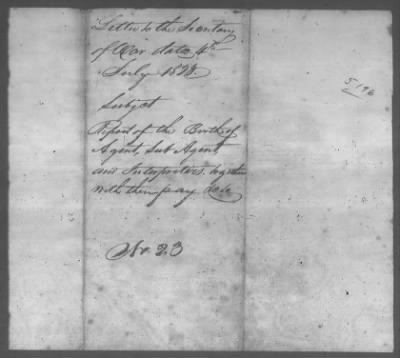 Letter to the Secretary
of War date 4th
July 1828.
Subject
Report of the Birth of
Agent, Sub Agent
and Interpreters, together
with their pay &c &c
No. 23
5,196